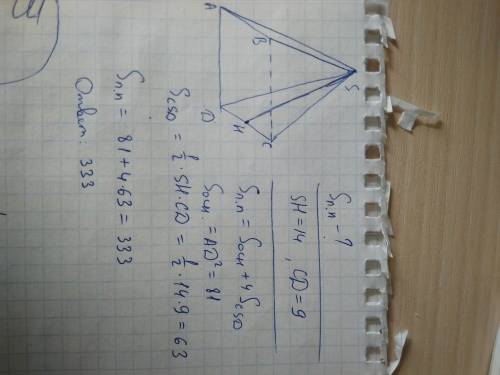 A
B
S
D
H
C
Sп.п - ?
SH=14, CD=9
Sп.п = Sосн + 4SCSD
Sосн. = AD² = 81
SCSD = 1/2 · SH · CD = 1/2 · 14 · 9 = 63
Sп.п = 81 + 4 · 63 = 333
Ответ: 333